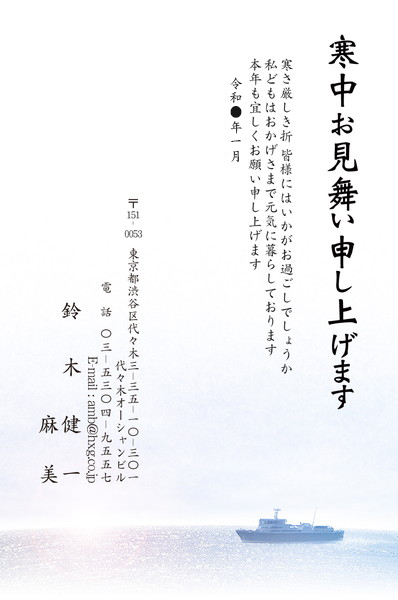 寒中お見舞い申し上げます
寒さ厳しき折 皆様にはいかがお過ごしでしょうか
私どもはおかげさまで元気に暮らしております
本年も宜しくお願い申し上げます
令和●年一月
〒151-0053 東京都渋谷区代々木三−三五−一〇−三〇一
代々木オーシャンビル
電話 〇三−五三〇四−九五五七
E-mail : amb@hxg.co.jp
鈴木健一
麻美